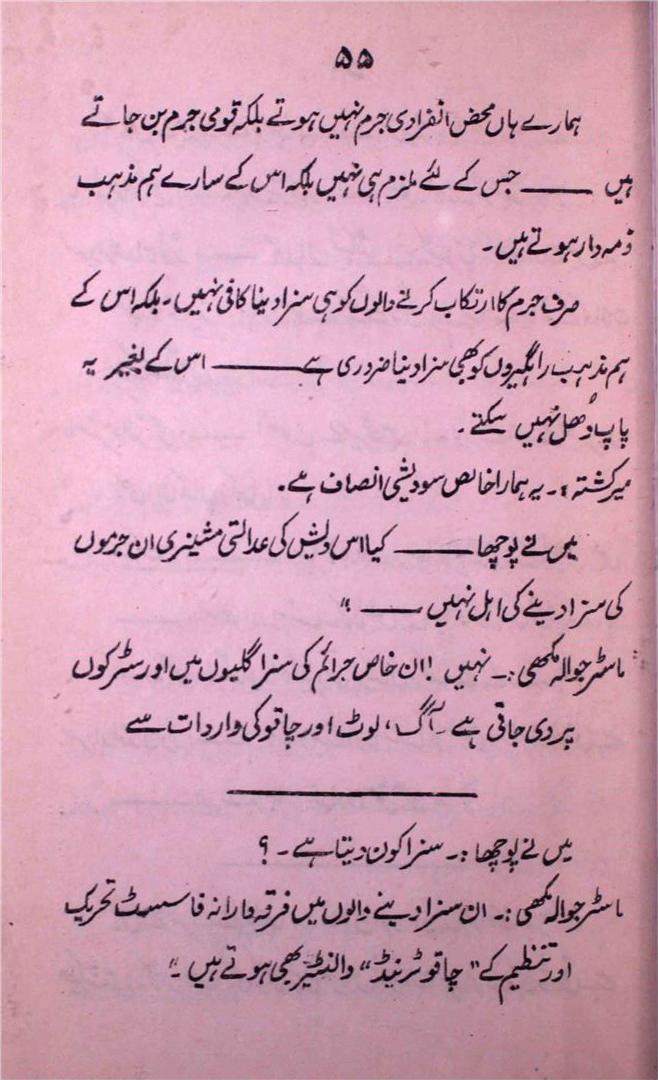 ۵۵
ہمارے ہاں محض انفرادی جرم نہیں ہوتے بلکہ قومی جرم بن جاتے
ہیں ——— جس کے لئے ملزم ہی نہیں بلکہ اس کے سارے ہم مذہب
ذمہ دار ہوتے ہیں۔
صرف جرم کا ارتکاب کرنے والوں کو ہی سزا دینا کافی نہیں۔ بلکہ اس کے
ہم مذہب راہگیروں کو بھی سزا دینا ضروری ہے ——— اس کے بغیر یہ
پاپ دُھل نہیں سکتے۔
میرکشتہ :۔ یہ ہمارا خالص سودیشی انصاف ہے۔
میں نے پوچھا ——— کیا اس دیش کی عدالتی مشینری ان جرموں
کی سزا دینے کی اہل نہیں ——— ؟"
ماسٹر جوالہ مکھی :۔ نہیں ! ان خاص جرائم کی سزا گلیوں میں اور سڑکوں
پر دی جاتی ہے۔ آگ، لوٹ اور چاقو کی واردات سے
میں نے پوچھا :۔ سزا کون دیتا ہے۔ ؟
ماسٹر جوالہ مکھی :۔ ان سزا دینے والوں میں فرقہ وارانہ فاسسٹ تحریک
اور تنظیم کے "چاقو ٹرینڈ" والنٹیر بھی ہوتے ہیں۔"